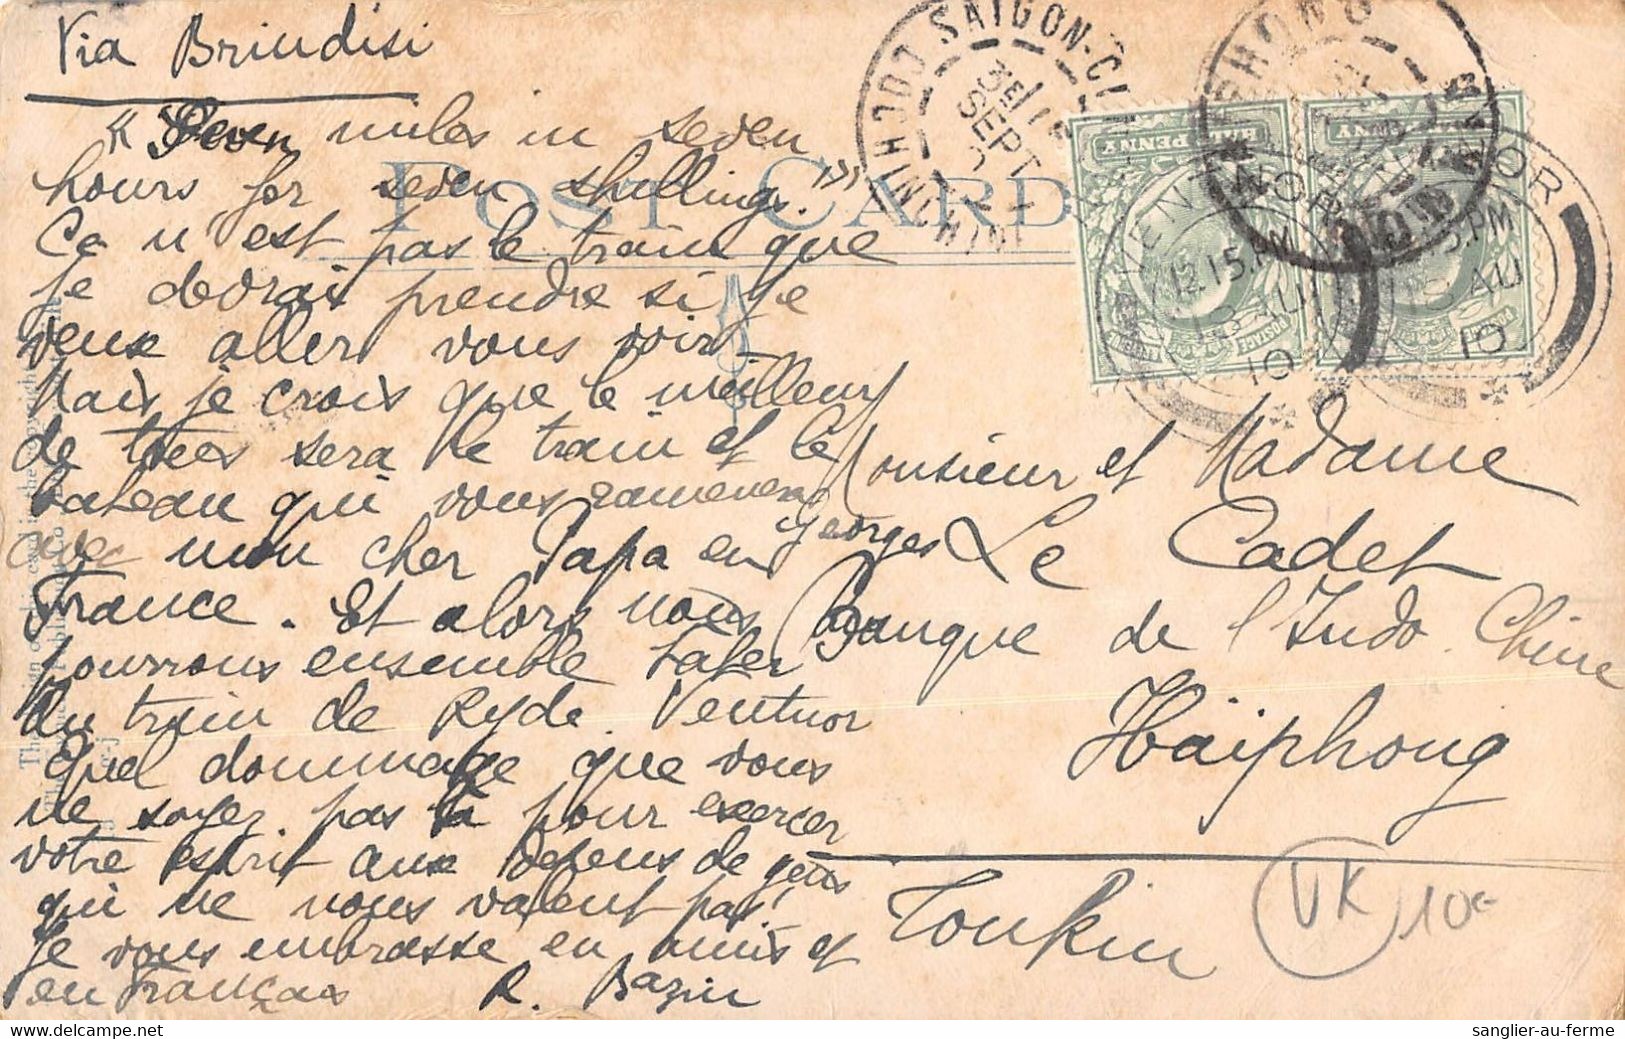 Via Brindisi
« Seven miles in seven
hours for seven shillings. »
Ça n'est pas le train que
je devrais prendre si je
veux aller vous voir.
Mais je crois que le meilleur
de tous sera le train et le
bateau qui vous ramènera
avec mon cher Papa en
France. Et alors nous
pourrons ensemble
du train de Ryde. Ventnor
Quel dommage que vous
ne soyez pas là pour exercer
votre esprit aux depens de gens
qui ne nous valent pas!
Je vous embrasse en amis et
en Français R. Bazin
POST CARD
Monsieur et Madame
Georges Le Cadet
Banque de l'Indo Chine
Haïphong
Tonkin
SAIGON-C
COCHINCHINE
3E/
SEPT
HALFPENNY
POSTAGE
VENTNOR
12.15.PM
10
HALFPENNY
POSTAGE
VENTNOR
15.PM
AU
10
UK
10€
sanglier-au-ferme